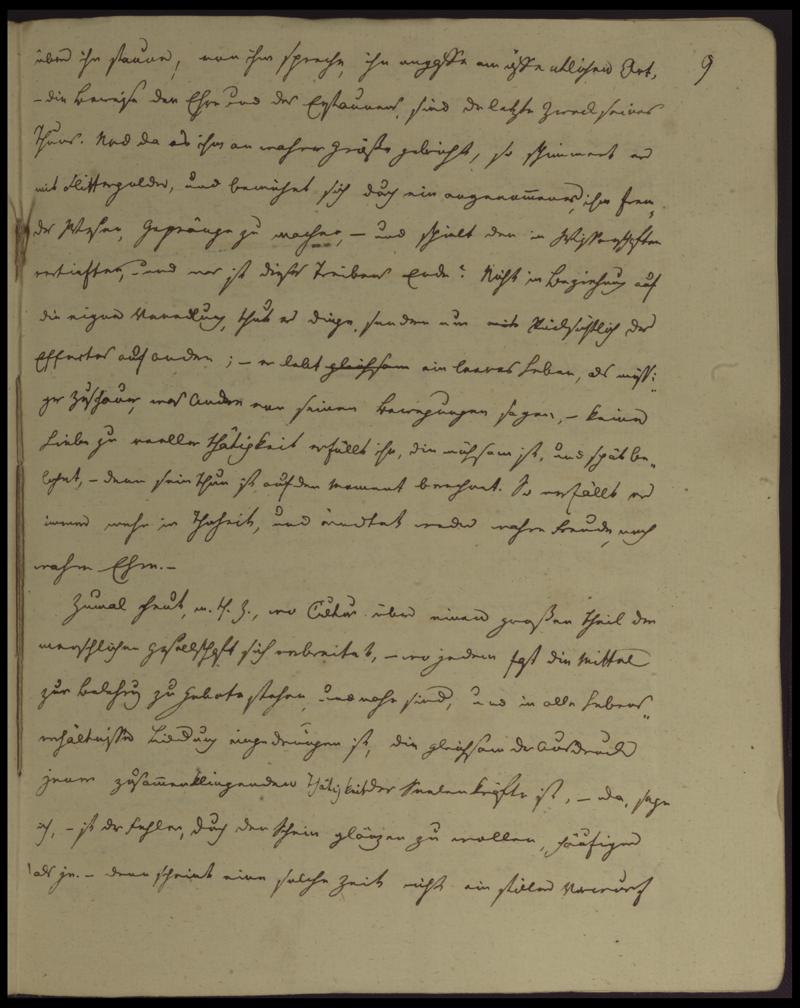 9
über ihn staune, von ihm spreche, ihn angaffe am öffentlichen Ort,
– die Beweise der Ehre und des Erstaunens, sind der letzte Zweck seines
Thuns. Und da es ihm an wahrer Größe gebricht, so schimmert er
mit Flittergolde, und bemühet sich durch ein angenommenes, ihm frem„
des Wesen, Gepränge zu machen, – und spielt den in Wissenschaften
vertieften, – und was ist dieses Treibens Ende? Nicht in Beziehung auf
die eigne Veredlung, thut er dinge, sondern nur rücksichtlich des
Effectes auf andere; – er lebt gleichsam ein leeres Leben, als müssi„
ger Zuschauer, was Andre von seinen Bewegungen sagen, – keine
Liebe zu reeller Thätigkeit erfüllt ihn, die mühsam ist, und spät be„
lohnt, – denn sein Thun ist auf den Moment berechnet. So verfällt er
immer mehr in Thorheit, und ärndtet weder wahre Freude, noch
wahre Ehre. –
Zumal heut, m. H. Z., wo Cultur über einen großen Theil der
menschlichen Gesellschaft sich verbreitet, – wo jedem fast die Mittel
zur Belehrung zu Gebote stehen, und nahe sind, und in alle Lebens„
verhältnisse Bildung eingedrungen ist, die gleichsam der Ausdruck
jener zusammenklingenden Thätigkeit der Seelenkräfte ist, – da, sage
ich, – ist der Fehler, durch den Schein glänzen zu wollen, häufiger
als je. – denn scheint eine solche Zeit nicht ein stiller Vorwurf